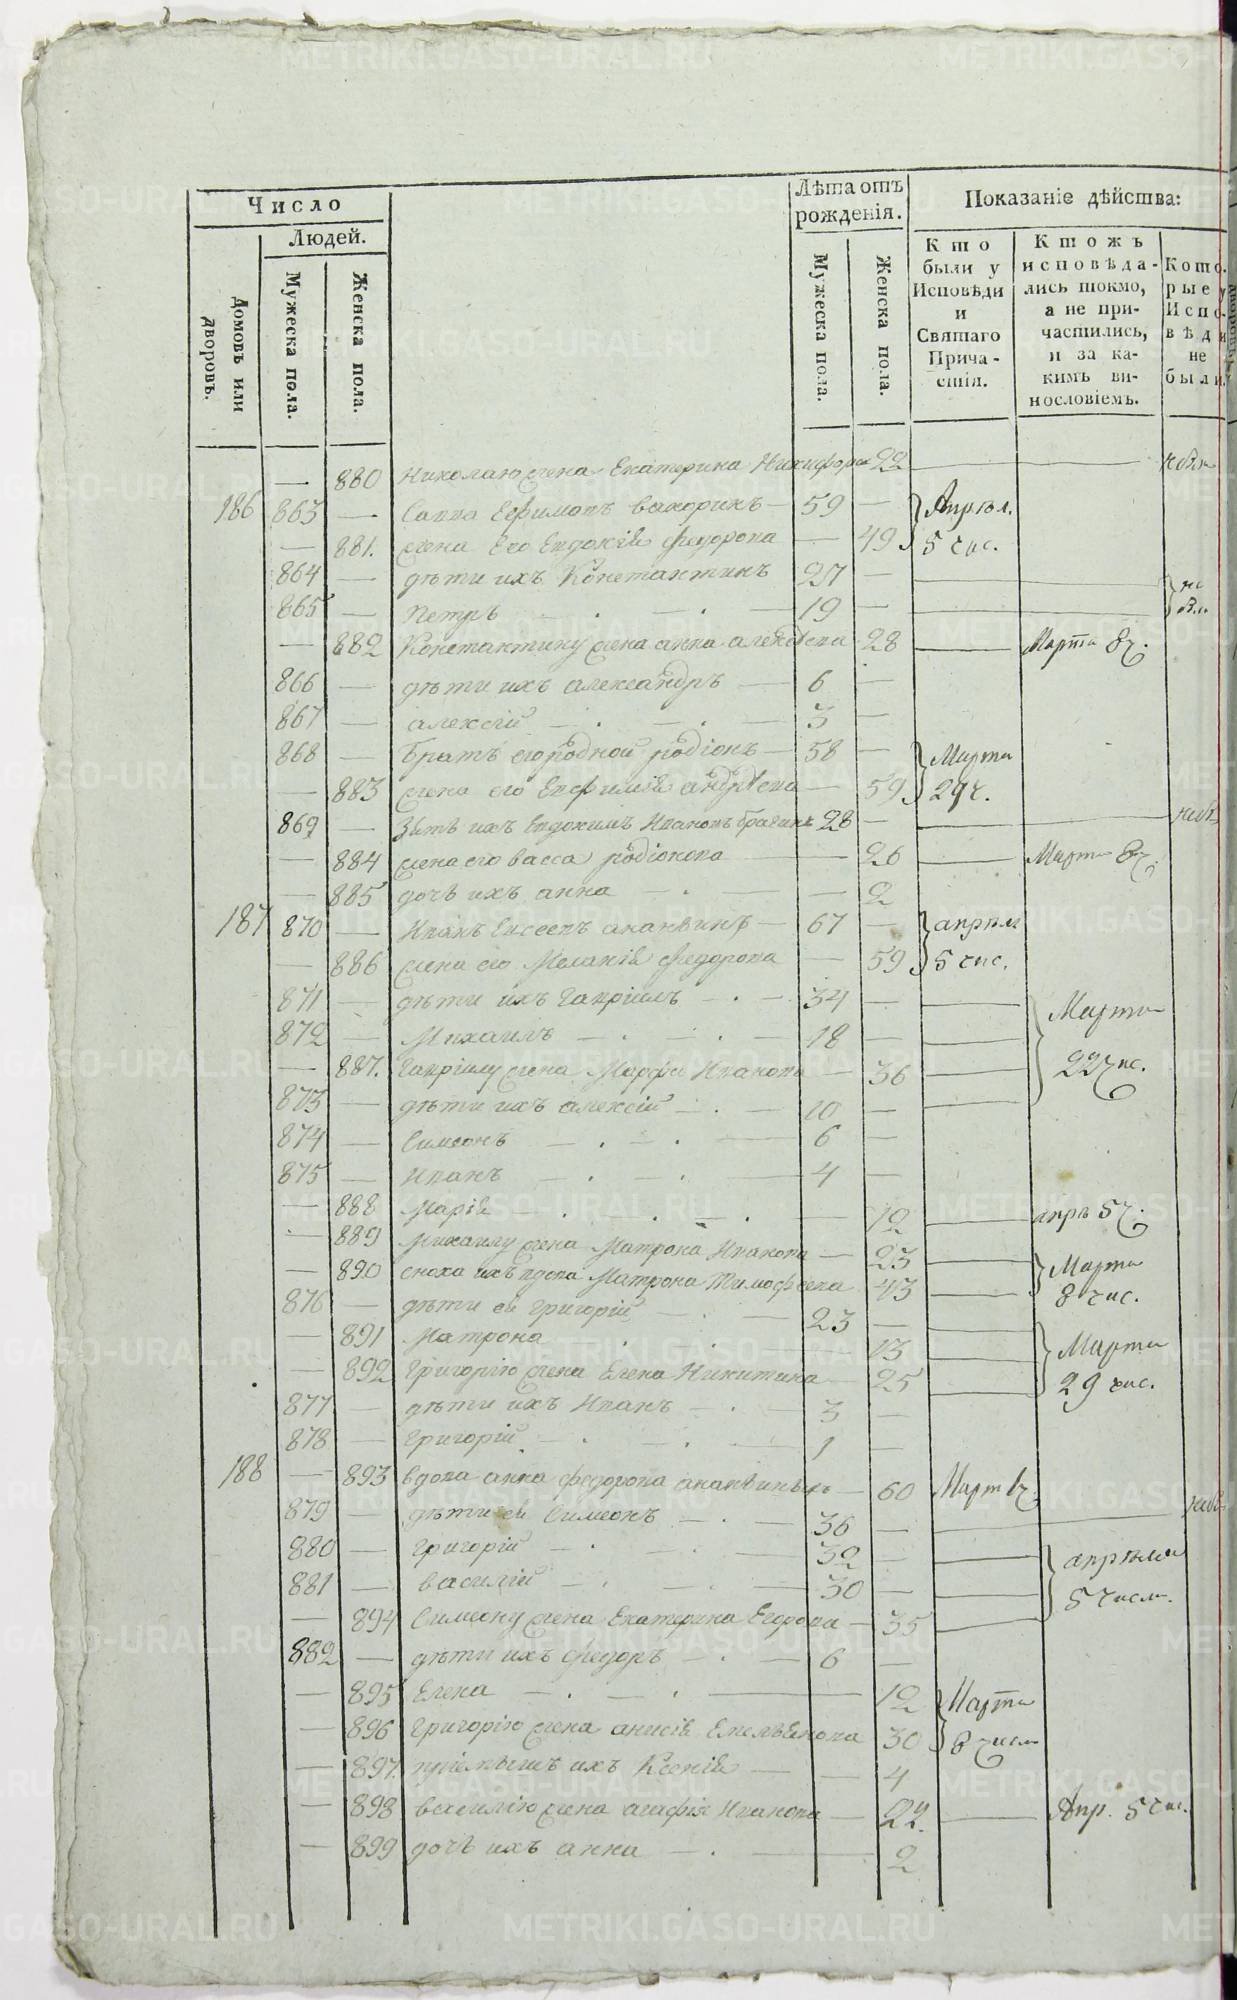 Число
Лѣта отъ рожденія.
Показаніе дѣйства:
Людей.
Домовъ или дворовъ.
Мужеска пола.
Женска пола.
Мужеска пола.
Женска пола.
Кто были у Исповѣди и Святаго Причастія.
Ктожъ исповѣдались токмо, а не причастились, и за какимъ винословіемъ.
Которые у Исповѣди не были.
— 880 Николаю жена Екатерина Никифоро 22
186 863 — Савва Ефимовъ Вахоринъ — 59 — Апрѣл.
— 881. жена Его Евдокія Федорова — 49 5 чис.
864 — дѣти ихъ Константинъ 27 —
865 — Петръ — 19 —
— 882 Константину жена анна алексѣева 28 — Марта 8 ч.
866 — дѣти ихъ александръ — 6 —
867 — алексій — 3 —
868 — братъ его родной родіонъ — 58 — Марта
— 883 жена его Евфимія андрѣева — 59 29 ч.
869 — Зять ихъ Евдокимъ Ивановъ Брагинъ 28 —
— 884 жена его васса родіонова — 26 — Марта 8 ч.
— 885 дочь ихъ анна — 2
187 870 — Иванъ Евсеевъ ананьинъ — 67 — апрѣля
— 886 жена его Меланія Федорова — 59 5 чис.
871 — дѣти ихъ Гавріилъ — 34 — Марта
872 — Михаилъ — 18 —
— 887. Гавріилу жена Марфа Иванова — 36 22 чис.
873 — дѣти ихъ алексій — 10 —
874 — Симеонъ — 6 —
875 — Иванъ — 4 —
— 888 Марія — 12 — апрѣ 5 ч.
— 889 Михаилу жена Матрона Иванова — 23 — Марта
— 890 сноха ихъ вдова Матрона Тимофеева 43 — 8 чис.
876 — дѣти ей григорій — 23 —
— 891 Матрона — 13 Марта
— 892 Григорію жена Елена Никитина — 25 — 29 чис.
877 — дѣти ихъ Иванъ — 3 —
878 — Григорій — 1 —
188 — 893 вдова анна федорова ананьиныхъ — 60 Март ч.
879 — дѣти ей Симеонъ — 36 —
880 — Григорій — 32 — апрѣля
881 — василій — 30 — 5 числ.
— 894 Симеону жена Екатерина Егорова — 35 —
882 — дѣти ихъ федоръ — 6 —
— 895 Елена — 12 Марта
— 896 Григорію жена анисія Емельянова 30 8 числ
— 897. пріемышъ ихъ Ксенія — 4
— 898 василію жена агафія Иванова — 22. — Апр. 5 чис.
— 899 дочь ихъ анна — 2
METRIKI.GASO-URAL.RU